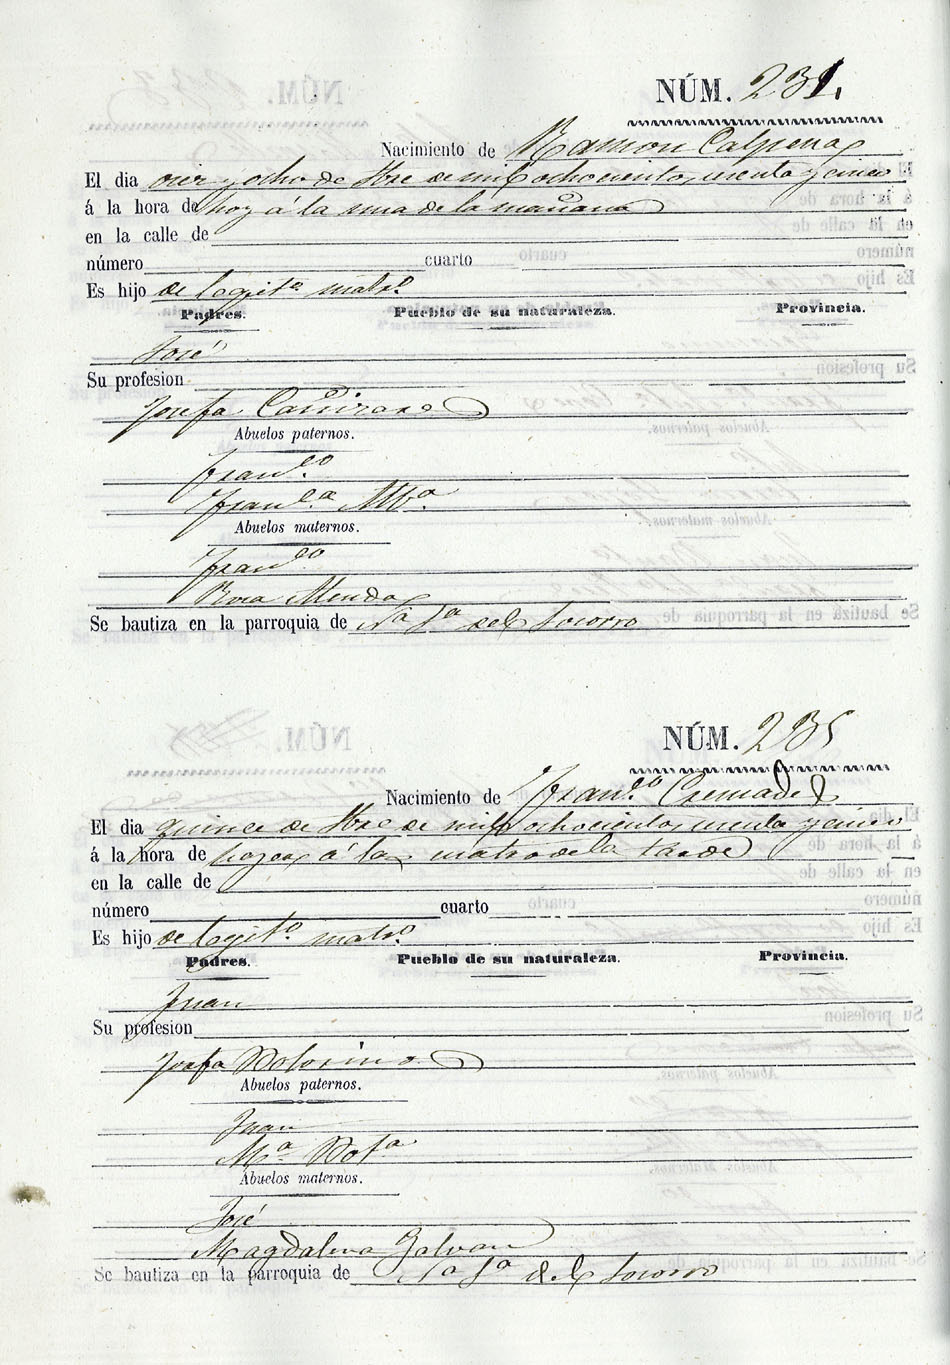 NÚM. 231.
Nacimiento de Ramon Calpena
El dia diez y ocho de Bre de mil ochocientos sesenta y cinco
á la hora de hoy á la una de la mañana
en la calle de
número cuarto
Es hijo de legit.º matr.º
Padres. Pueblo de su naturaleza. Provincia.
José
Su profesion
Josefa Cañizares
Abuelos paternos.
Fran.co
Fran.ca
Abuelos maternos.
Fran.co
Rosa
Se bautiza en la parroquia de N.a S.a del Socorro
NÚM. 235
Nacimiento de Fran.co Cremades
El dia quince de Bre de mil ochocientos sesenta y cinco
á la hora de á las cuatro de la tarde
en la calle de
número cuarto
Es hijo de legit.º matr.º
Padres. Pueblo de su naturaleza. Provincia.
Juan
Su profesion
Josefa
Abuelos paternos.
Juan
M.a
Abuelos maternos.
José
Magdalena Galvan
Se bautiza en la parroquia de N.a S.a del Socorro